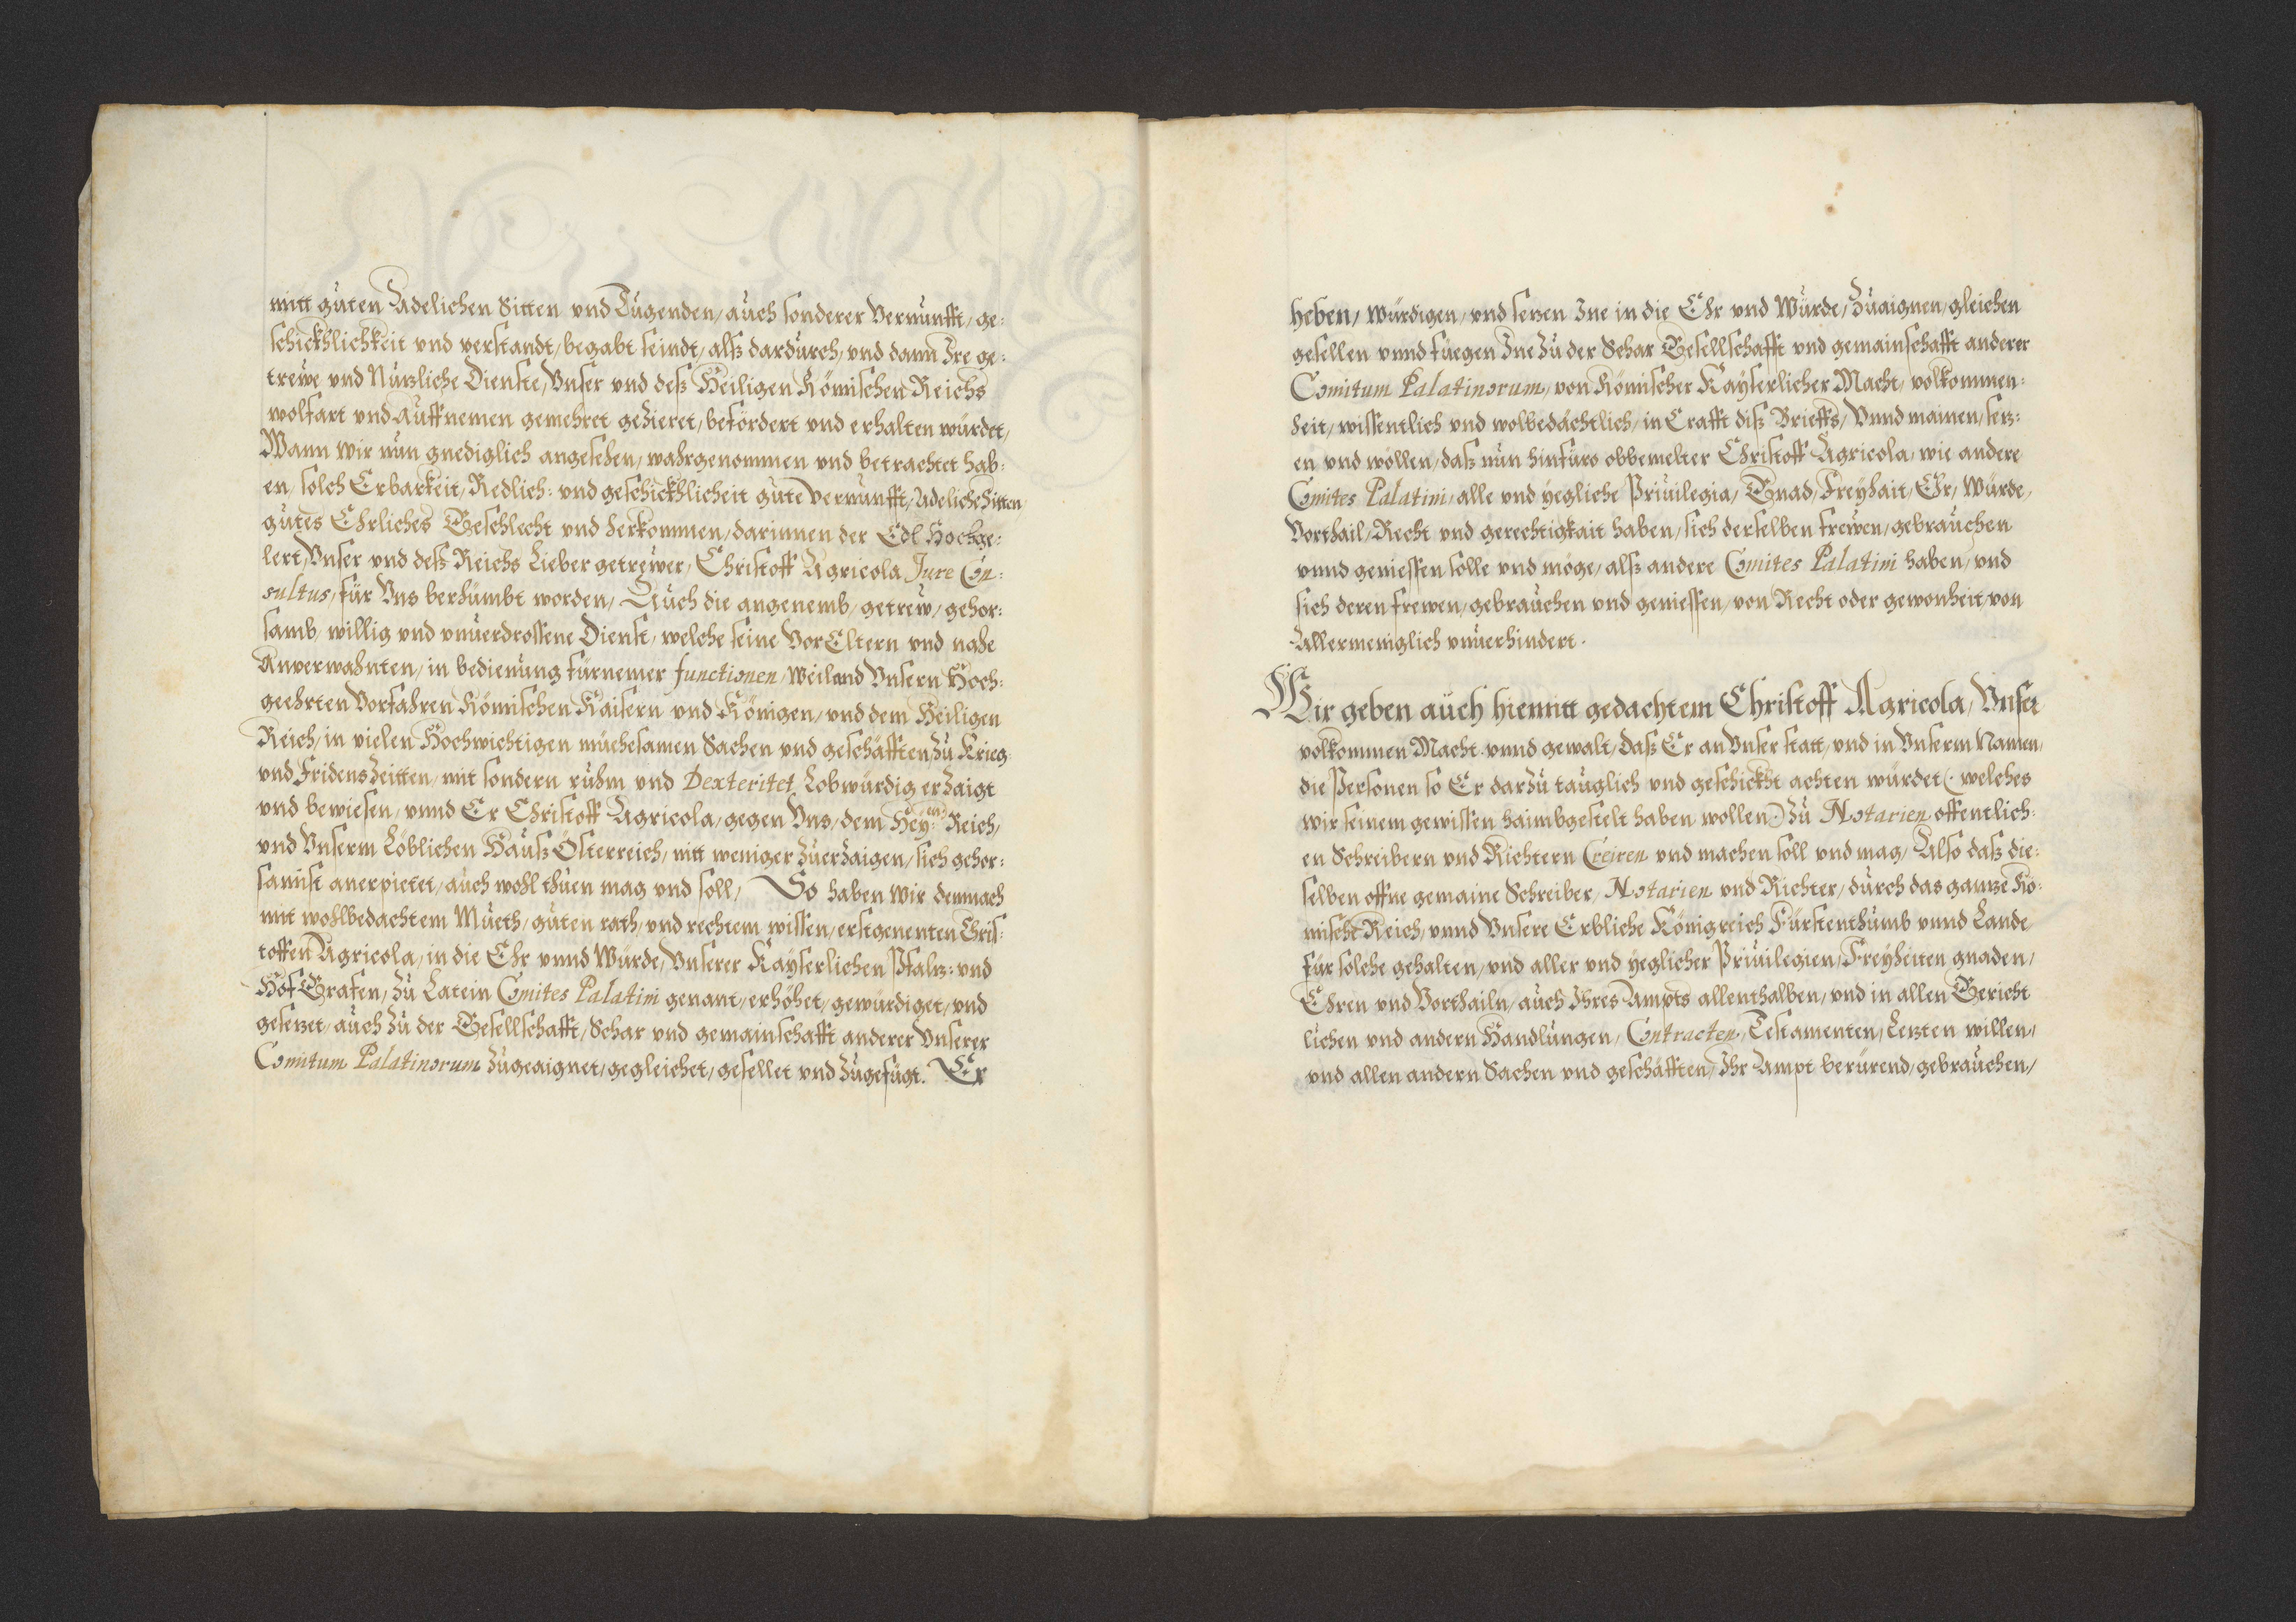 mitt guten Adelichen Sitten vnd Tugenden, auch sonderer Vernunfft, ge:
schickhlichkeit vnd verstandt, begabt seindt, alß dardurch, vnd dann Ire ge:
trewe vnd Nutzliche Dienste, Vnser vnd deß Heiligen Römischen Reichs
wolfart vnd Auffnemen gemehret geZieret, befördert vnd erhalten würdet,
Wann wir nun gnediglich angesehen, wahrgenommen vnd betrachtet hab:
en, solch Erbarkeit, Redlich: vnd geschickhlicheit gute vernunfft, Adeliche Sitten,
gutes Ehrliches Geschlecht vnd herkommen, darinnen der Edl Hochge:
lert, Vnser vnd deß Reichs Lieber getrewer, Christoff Agricola Jure Con:
sultus, für Vns berhümbt worden, Auch die angenemb, getrew, gehor:
samb, willig vnd vnuerdrossene Dienst, welche seine VorEltern vnd nahe
Anverwahnten, in bedienung fürnemer functionen, Weiland Vnsern Hoch:
geehrten Vorfahren Römischen Kaisern vnd Königen, vnd dem Heiligen
Reich, in vielen Hochwichtigen müehesamen Sachen vnd geschäfften, Zu Krieg:
vnd FridensZeitten, mit sondern ruhm vnd Dexteritet, Lobwürdig erZaigt
vnd bewiesen, vnnd Er Christoff Agricola, gegen Vns, dem Hey:en Reich,
vnd Vnserm Löblichen Hauß Österreich, nitt weniger ZuerZaigen, sich gehor:
samist anerpietet, auch wohl thuen mag vnd soll, So haben wir demnach
mit wohlbedachtem Mueth, guten rath, vnd rechtem wissen, erstgenenten Chris:
toffen Agricola, in die Ehr vnnd Würde, Vnserer Kayserlichen Pfaltz: vnd
Hof Grafen, Zu Latein Comites Palatini genant, erhöhet, gewürdiget, vnd
gesetzet, auch Zu der Gesellschafft, Schar vnd gemainschafft anderer Vnserer
Comitum Palatinorum Zugeaignet, gegleichet, gesellet vnd Zugefügt. Er
heben, würdigen, vnd setzen Ine in die Ehr vnd Würde, Zuaignen, gleichen
gesellen vnnd füegen Ine Zu der Schar Gesellschafft vnd gemainschafft anderer
Comitum Palatinorum, von Römischer Kayserlicher Macht, volkommen:
heit, wissentlich vnd wolbedächtlich, in Crafft diß Brieffs, Vnnd mainen, setz:
en vnd wöllen, daß nun hinfüro obbemelter Christoff Agricola, wie andere
Comites Palatini, alle vnd yegliche Priuilegia, Gnad, Freyhait, Ehr, Würde,
Vorthail, Recht vnd gerechtigkait haben, sich derselben frewen, gebrauchen
vnnd geniessen solle vnd möge, alß andere Comites Palatini haben, vnd
sich deren frewen, gebrauchen vnd geniessen, von Recht oder gewonheit, von
Allermeniglich vnuerhindert.
Wir geben auch hiemitt gedachtem Christoff Agricola, Vnser
volkommen Macht vnnd gewalt, daß Er an Vnser statt, vnd in Vnserm Namen,
die Personen so Er darZu tauglich vnd geschickht achten würdet (: welches
wir seinem gewissen haimbgestelt haben wollen :) Zu Notarien offentlich:
en Schreibern vnd Richtern Creiren vnd machen soll vnd mag, Also daß die:
selben offne gemaine Schreiber, Notarien vnd Richter, durch das gantze Rö:
mische Reich, vnnd Vnsere Erbliche Königreich Fürstenthumb vnnd Lande
für solche gehalten, vnd aller vnd yeglicher Priuilegien, Freyheiten gnaden,
Ehren vnd Vorthailn, auch Ihres Ampts allenthalben, vnd in allen Gericht
lichen vnd andern Handlungen, Contracten, Testamenten, Letzten willen,
vnd allen andern Sachen vnd geschäfften, Ihr Ampt berürend, gebrauchen,